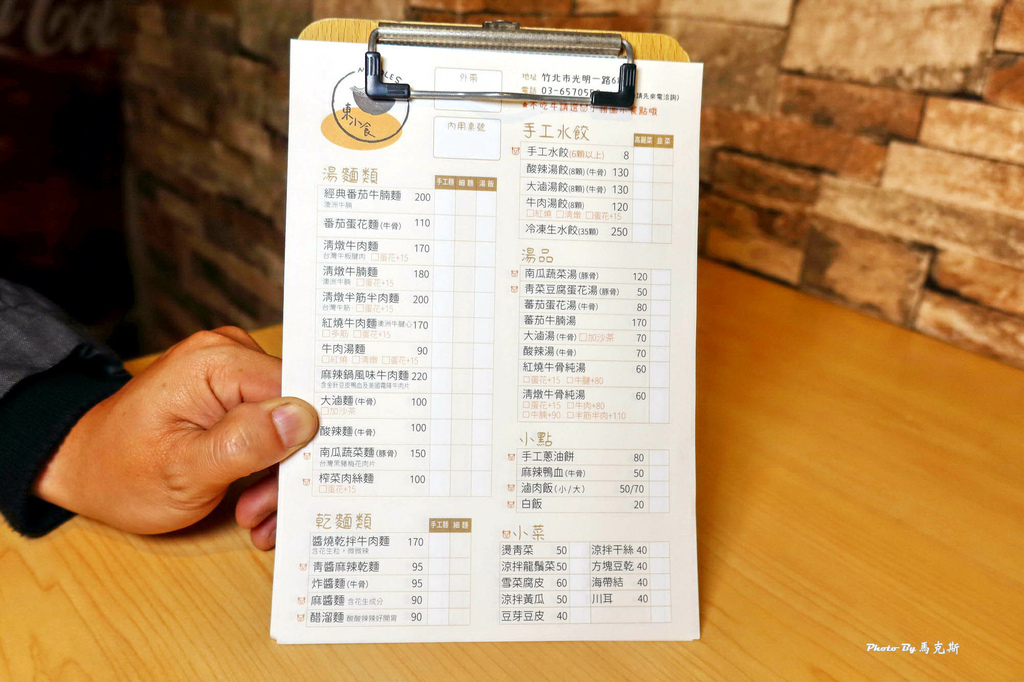 NOODLES
東小食
外帶
內用桌號
地址 竹北市光明一路6
電話 03-65705
請先來電洽詢)
湯麵類
手工麵 細麵 湯飯
經典番茄牛腩麵 200
澳洲牛腩
番茄蛋花麵(牛骨) 110
清燉牛肉麵 170
台灣牛板腱肉 □蛋花+15
清燉牛腩麵 180
澳洲牛腩 □蛋花+15
清燉半筋半肉麵 200
台灣牛筋 □蛋花+15
紅燒牛肉麵 澳洲牛腱心 170
□半筋 □蛋花+15
牛肉湯麵 90
□紅燒 □清燉 □蛋花+15
麻辣鍋風味牛肉麵 220
含金針豆皮鴨血及美國霜降牛肉片
大滷麵(牛骨) 100
□加沙茶
酸辣麵(牛骨) 100
南瓜蔬菜麵(豚骨) 150
台灣黑豬梅花肉片
榨菜肉絲麵 100
□蛋花+15
乾麵類
手工麵 細麵
醬燒乾拌牛肉麵 170
含花生粒，微微辣
青醬麻辣乾麵 95
炸醬麵(牛骨) 95
麻醬麵 含花生成分 90
醋溜麵 酸酸辣辣好開胃 90
手工水餃
高麗菜 韭菜
手工水餃(6顆以上) 8
酸辣湯餃(8顆)(牛骨) 130
大滷湯餃(8顆)(牛骨) 130
牛肉湯餃(8顆) 120
□紅燒 □清燉 □蛋花+15
冷凍生水餃(35顆) 250
湯品
南瓜蔬菜湯(豚骨) 120
青菜豆腐蛋花湯(豚骨) 50
蕃茄蛋花湯(牛骨) 80
蕃茄牛腩湯 170
大滷湯(牛骨) □加沙茶 70
酸辣湯(牛骨) 70
紅燒牛骨純湯 60
□蛋花+15 □牛腱+80
清燉牛骨純湯 60
□蛋花+15 □牛肉+80
□牛腩+90 □半筋半肉+110
小點
手工蔥油餅 80
麻辣鴨血(牛骨) 50
滷肉飯(小/大) 50/70
白飯 20
小菜
燙青菜 50 涼拌干絲 40
涼拌龍鬚菜 50 方塊豆乾 40
雪菜腐皮 60 海帶結 40
涼拌黃瓜 50 川耳 40
豆芽豆皮 40
Photo By 馬克斯